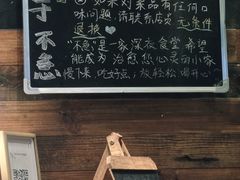 于不急
如果对菜品有任何口
味问题 请联系店员 无条件
退换
"不急"是一家深夜食堂 希望
能成为治愈您心灵的小家
慢下来 吃好点 放轻松 喝开心